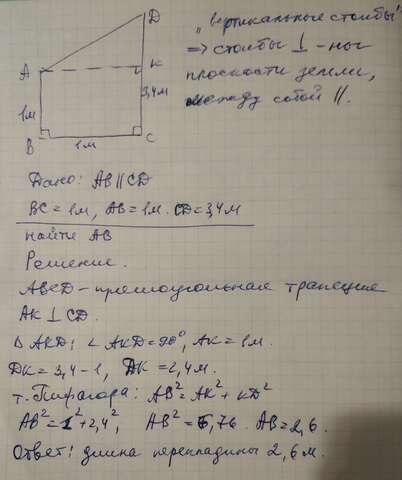 D
„Вертикальные столбы"
⇒ столбы ⊥-ны
плоскости земли,
между собой ||.
A
K
1м
3,4м
B
1м
C
Дано: AB||CD
BC=1м, AB=1м. CD=3,4м
найти AB
Решение.
ABCD-прямоугольная трапеция
AK⊥CD.
△ AKD; ∠AKD=90°, AK=1м.
DK=3,4-1, DK=2,4м.
т. Пифагора: AB²=AK²+KD²
AB²=1²+2,4², AB²=6,76. AB=2,6.
Ответ: длина перекладины 2,6м.